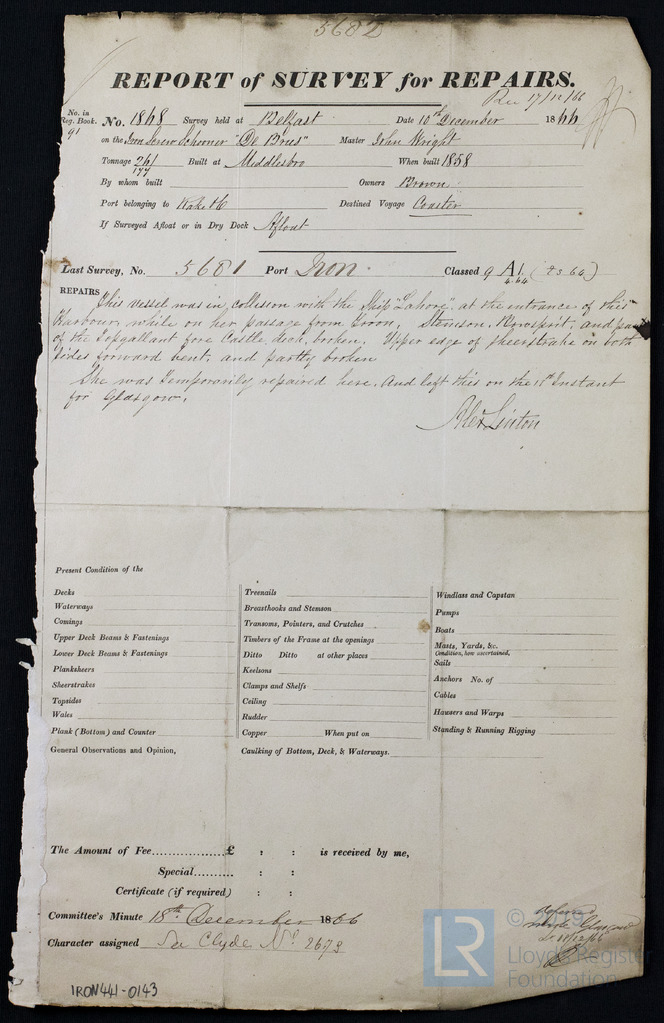 5682
REPORT of SURVEY for REPAIRS.
Rec 17/12/66
No. in Reg. Book. 91
No. 1868 Survey held at Belfast Date 10th December 1866
on the Iron Screw Schooner "De Brus" Master John Wright
Tonnage 261 Built at Middlesbro When built 1858
177
By whom built Owners Brown
Port belonging to Destined Voyage Coaster
If Surveyed Afloat or in Dry Dock Afloat
Last Survey, No. 5681 Port Iron Classed 9 A1
4.64
REPAIRS This vessel was in collision with the Ship "Lahore" at the entrance of this
Harbour, while on her passage from Troon, Stemson, Bowsprit, and part
of the Topgallant fore Castle, deck, broken. Upper edge of sheerstrake on both
sides forward bent, and partly broken
She was temporarily repaired here, and left this on the Instant
for Glasgow.
Alex Linton
Present Condition of the
Decks
Waterways
Comings
Upper Deck Beams & Fastenings
Lower Deck Beams & Fastenings
Planksheers
Sheerstrakes
Topsides
Wales
Plank (Bottom) and Counter
General Observations and Opinion,
Treenails
Breasthooks and Stemson
Transoms, Pointers, and Crutches
Timbers of the Frame at the openings
Ditto Ditto at other places
Keelsons
Clamps and Shelfs
Ceiling
Rudder
Copper When put on
Caulking of Bottom, Deck, & Waterways.
Windlass and Capstan
Pumps
Boats
Masts, Yards, &c.
Condition, how ascertained,
Sails
Anchors No. of
Cables
Hausers and Warps
Standing & Running Rigging
The Amount of Fee...............£ : : is received by me,
Special......... : :
Certificate (if required) : :
Committee's Minute 18th December 1866
Character assigned See Clyde No. 2673
LR
© 2019
Lloyd's Register
Foundation
IRON441-0143